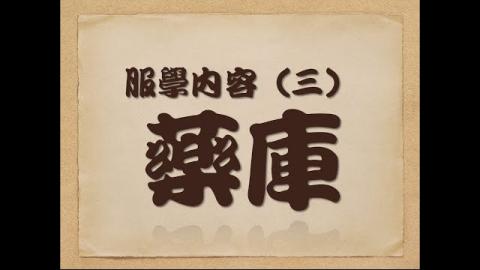 服學內容（三）
藥庫